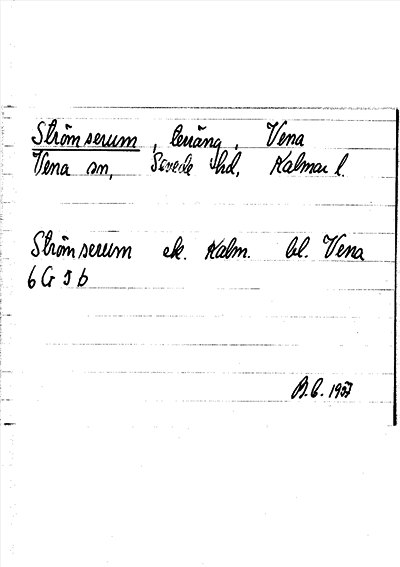 Strömserum, terräng, Vena
Vena sn, Sevede hd, Kalmar l.
Strömserum ek. Kalm. bl. Vena
6 G 5 b
B.C. 1957